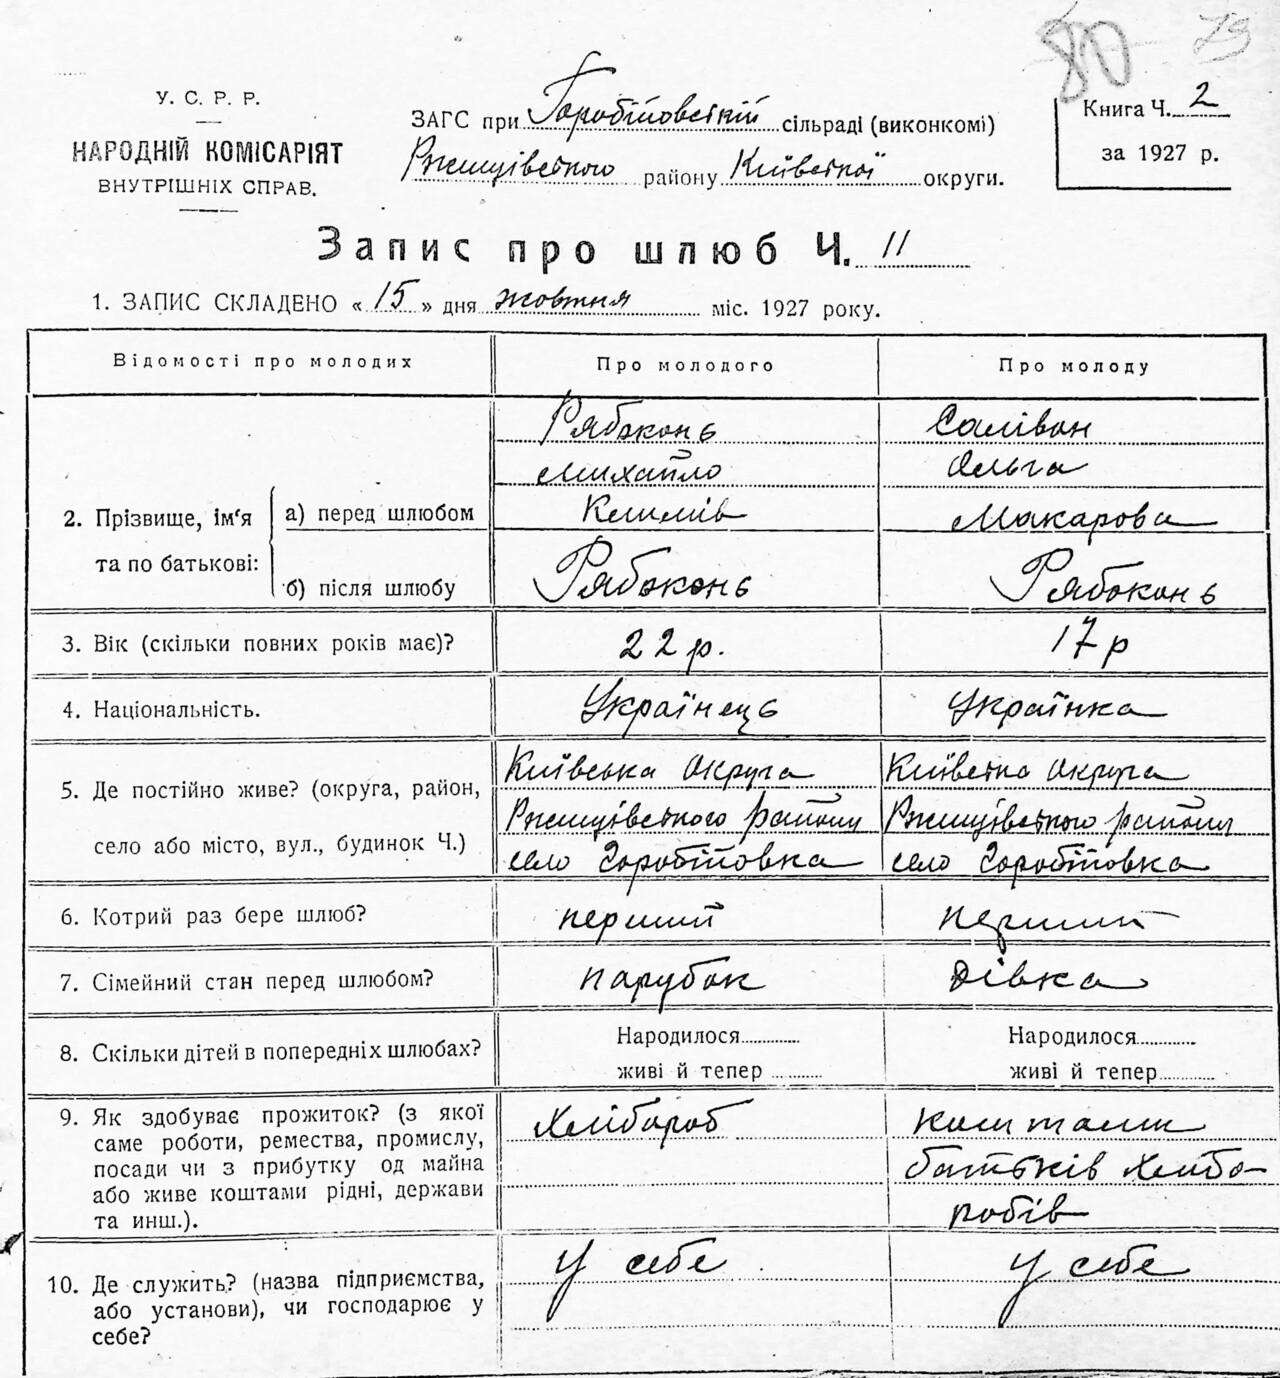 80 79
У. С. Р. Р.
НАРОДНІЙ КОМІСАРІЯТ
ВНУТРІШНІХ СПРАВ.
ЗАГС при Горобіївській сільраді (виконкомі)
Ржищівського району Київської округи.
Книга Ч. 2
за 1927 р.
Запис про шлюб Ч. 11
1. ЗАПИС СКЛАДЕНО « 15 » дня жовтня міс. 1927 року.
Відомості про молодих Про молодого Про молоду
2. Прізвище, ім'я та по батькові:
а) перед шлюбом
Рябоконь
Михайло
Климів
Салівон
Ольга
Макарова
б) після шлюбу Рябоконь Рябоконь
3. Вік (скільки повних років має)? 22 р. 17 р
4. Національність. Українець Українка
5. Де постійно живе? (округа, район,
село або місто, вул., будинок Ч.)
Київська округа
Ржищівського району
село Горобіївка
Київська округа
Ржищівського району
село Горобіївка
6. Котрий раз бере шлюб? перший перший
7. Сімейний стан перед шлюбом? парубок дівка
8. Скільки дітей в попередніх шлюбах?
Народилося
живі й тепер
Народилося
живі й тепер
9. Як здобуває прожиток? (з якої
саме роботи, ремества, промислу,
посади чи з прибутку од майна
або живе коштами рідні, держави
та инш.).
Хлібороб
коштами
батьків хлібо-
робів
10. Де служить? (назва підприємства,
або установи), чи господарює у
себе?
у себе
у себе